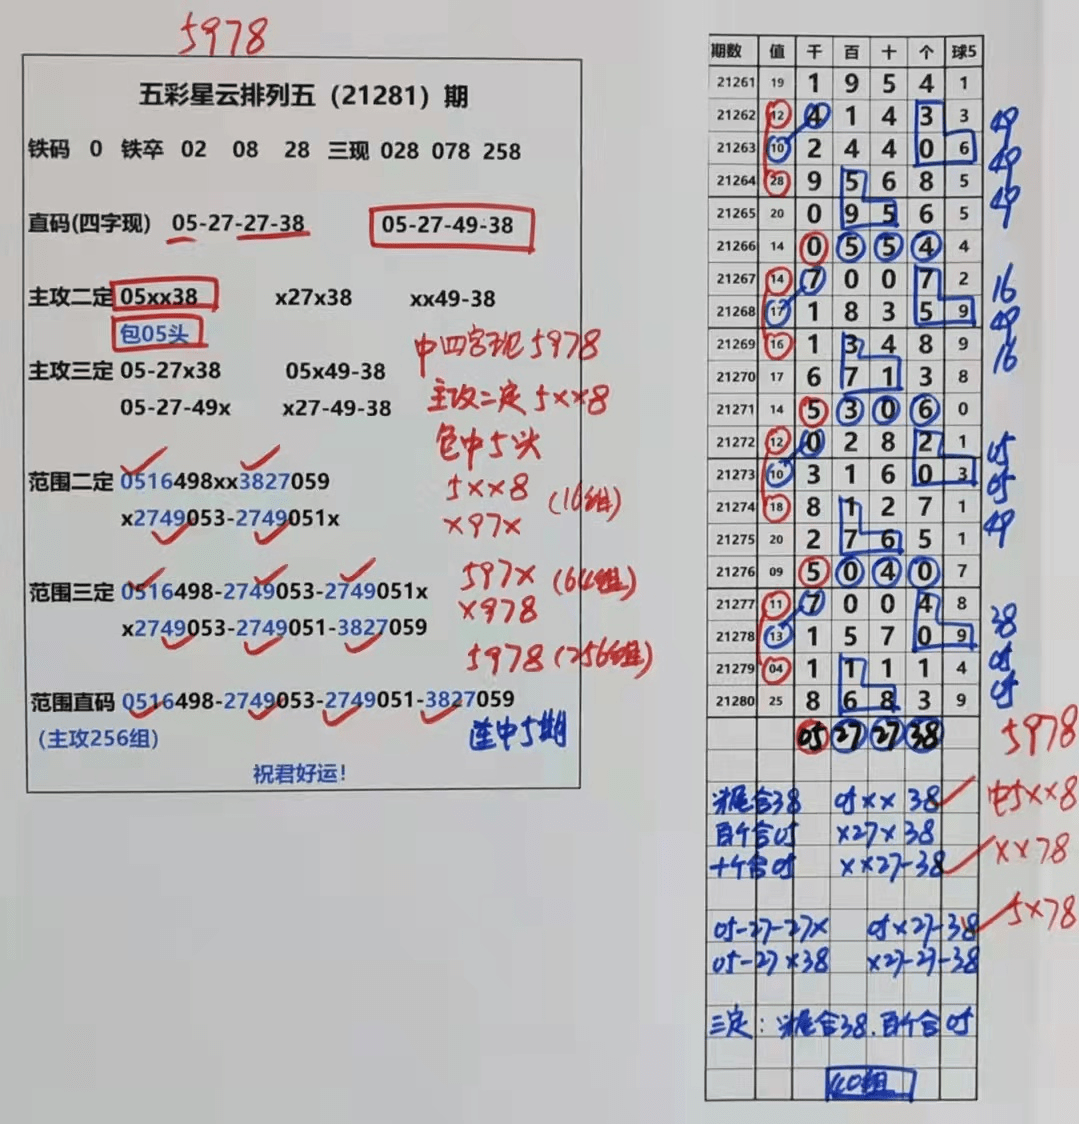 5978
五彩星云排列五（21281）期
铁码 0 铁卒 02 08 28 三现 028 078 258
直码(四字现) 05-27-27-38 05-27-49-38
主攻二定 05xx38 x27x38 xx49-38
包05头
主攻三定 05-27x38 05x49-38
05-27-49x x27-49-38
范围二定 0516498xx3827059
x2749053-2749051x
范围三定 0516498-2749053-2749051x
x2749053-2749051-3827059
范围直码 0516498-2749053-2749051-3827059
(主攻256组)
祝君好运！
中四字现5978
主攻二定5××8
包中5头
5××8 (16组)
×97×
597× (64组)
×978
5978 (256组)
连中5期
期数 值 千 百 十 个 球5
21261 19 1 9 5 4 1
21262 12 4 1 4 3 3
21263 10 2 4 4 0 6
21264 28 9 5 6 8 5
21265 20 0 9 5 6 5
21266 14 0 5 5 4 4
21267 14 7 0 0 7 2
21268 17 1 8 3 5 9
21269 16 1 3 4 8 9
21270 17 6 7 1 3 8
21271 14 5 3 0 6 0
21272 12 0 2 8 2 1
21273 10 3 1 6 0 3
21274 18 8 1 2 7 1
21275 20 2 7 6 5 1
21276 09 5 0 4 0 7
21277 11 7 0 0 4 8
21278 13 1 5 7 0 9
21279 04 1 1 1 1 4
21280 25 8 6 8 3 9
05 27 27 38
49
49
49
16
49
16
05
05
49
38
05
05
5978
头尾合38 05×× 38 中5××8
百个合05 ×27×38
十个合05 ××27-38 ××78
05-27-27× 05×27-38 5×78
05-27×38 ×27-27-38
三定：头尾合38.百个合05
40组